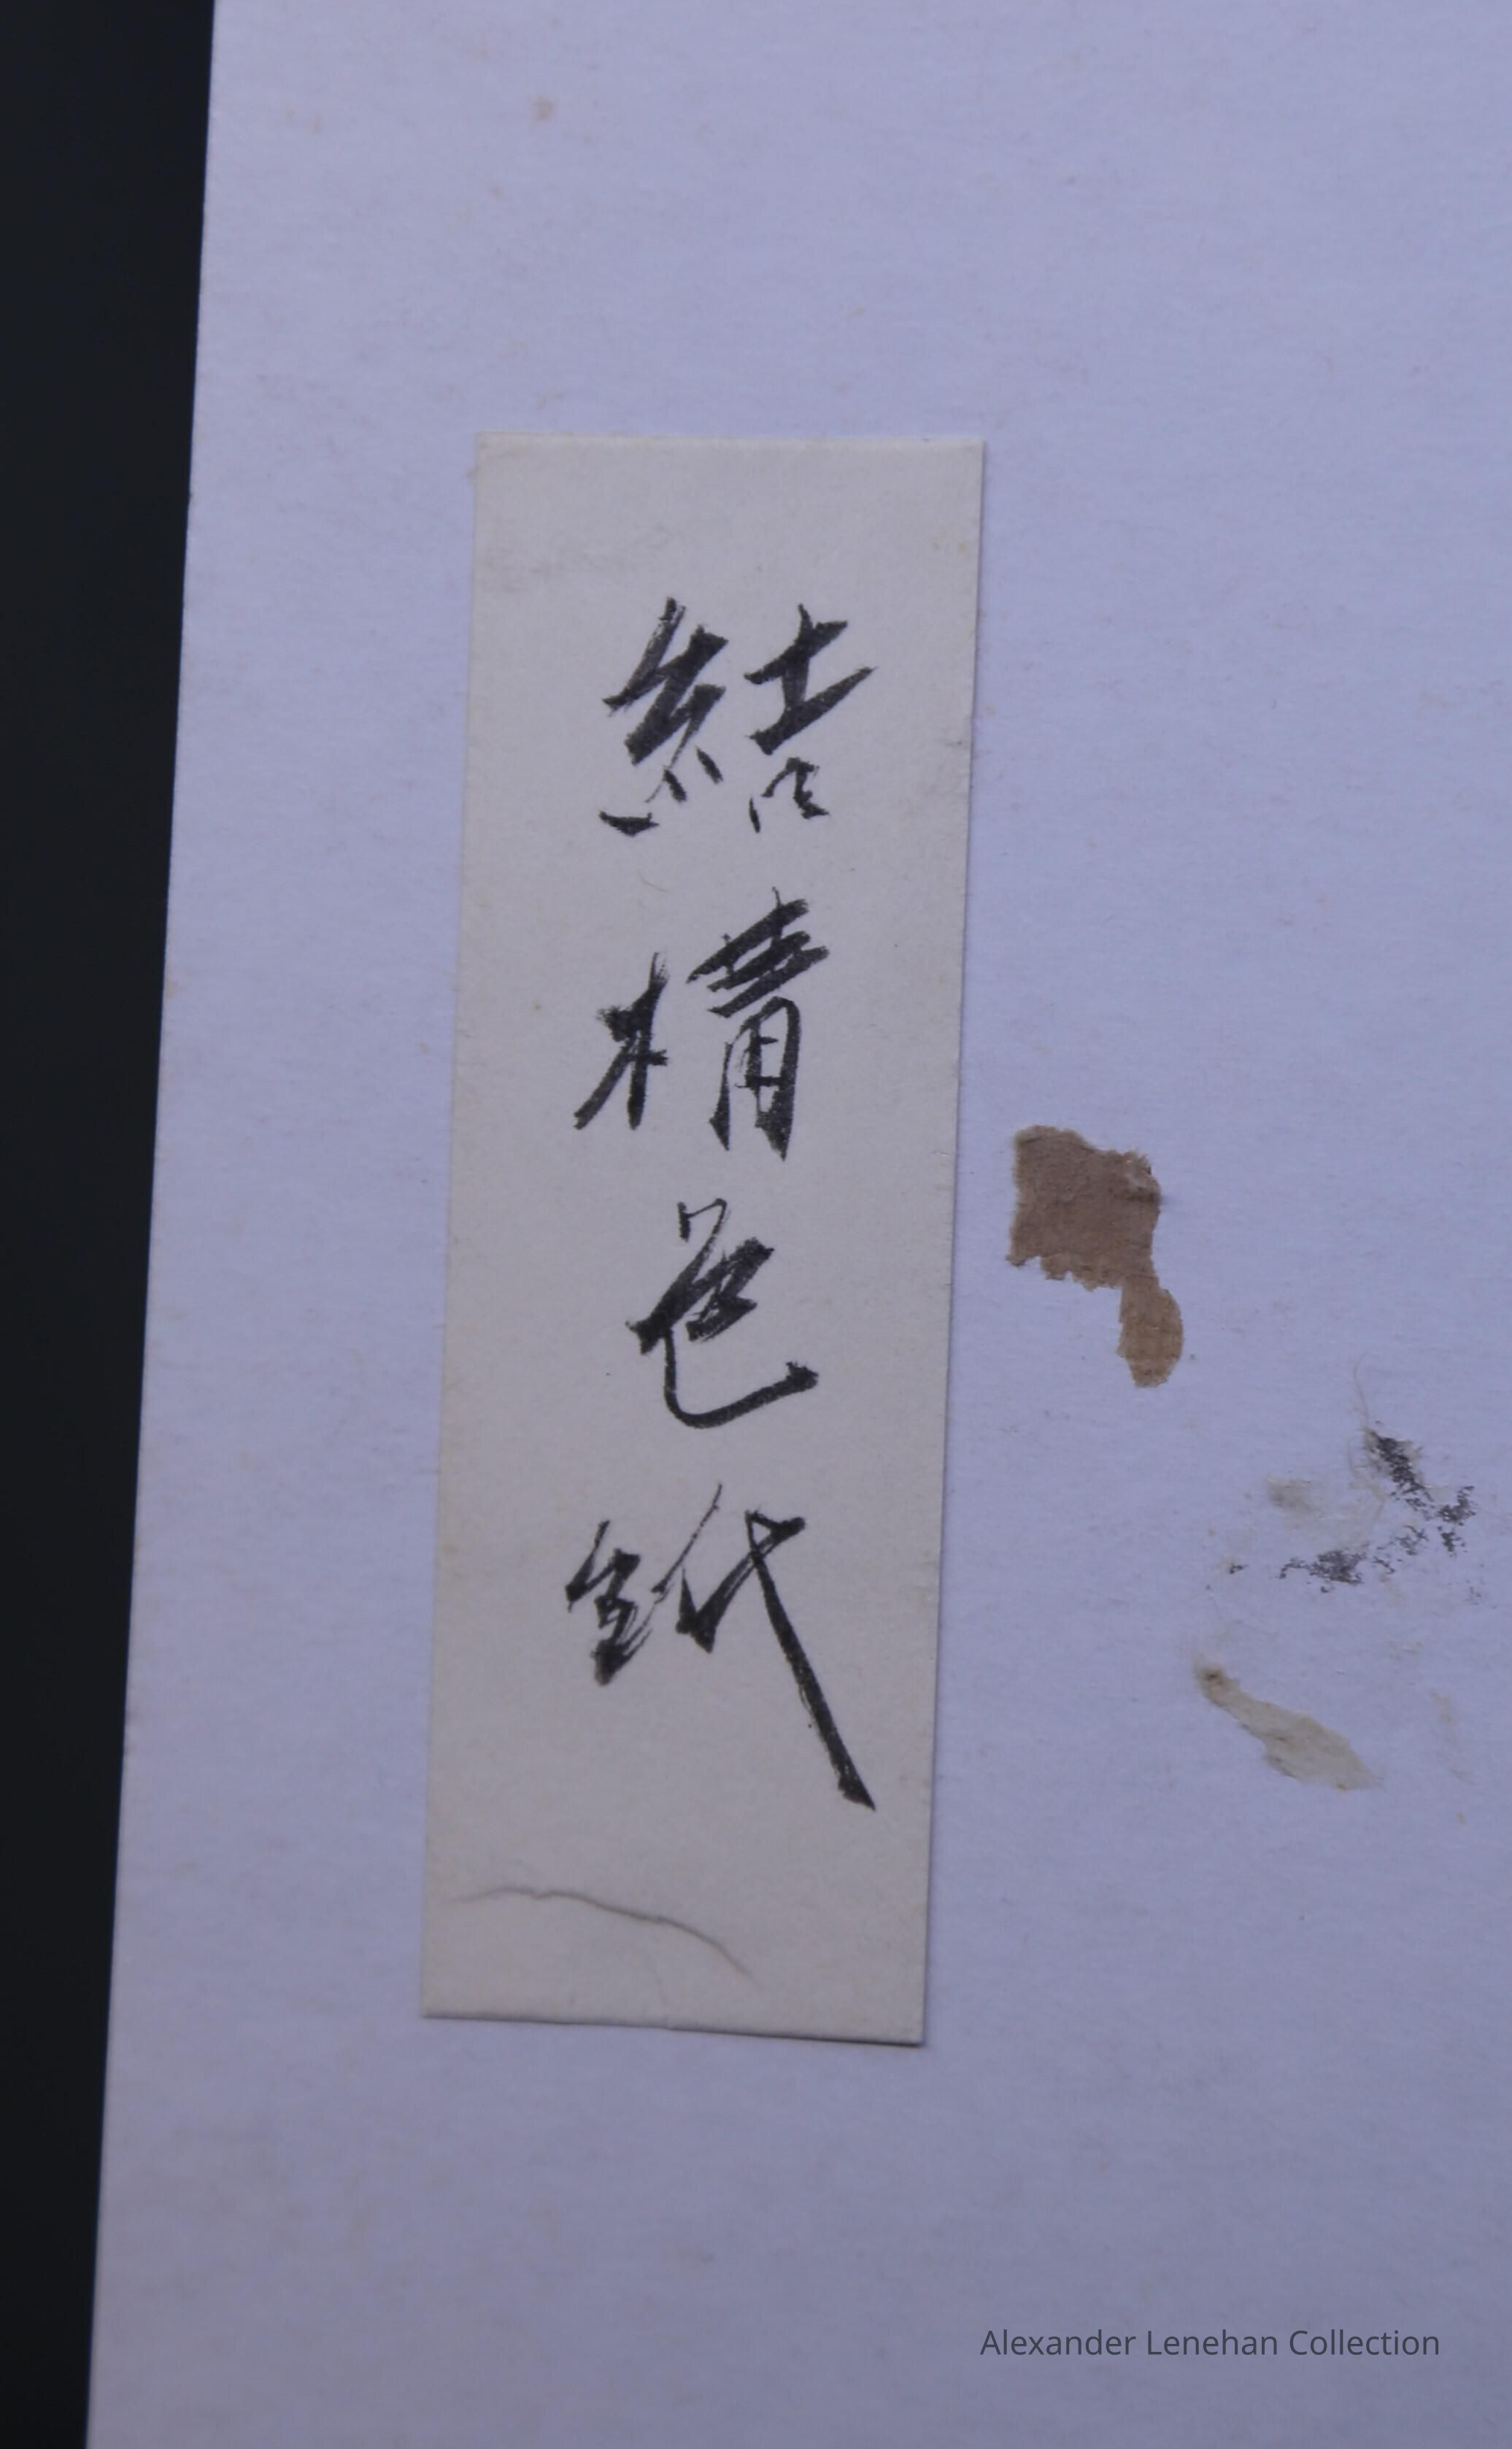 結構色紙
Alexander Lenehan Collection